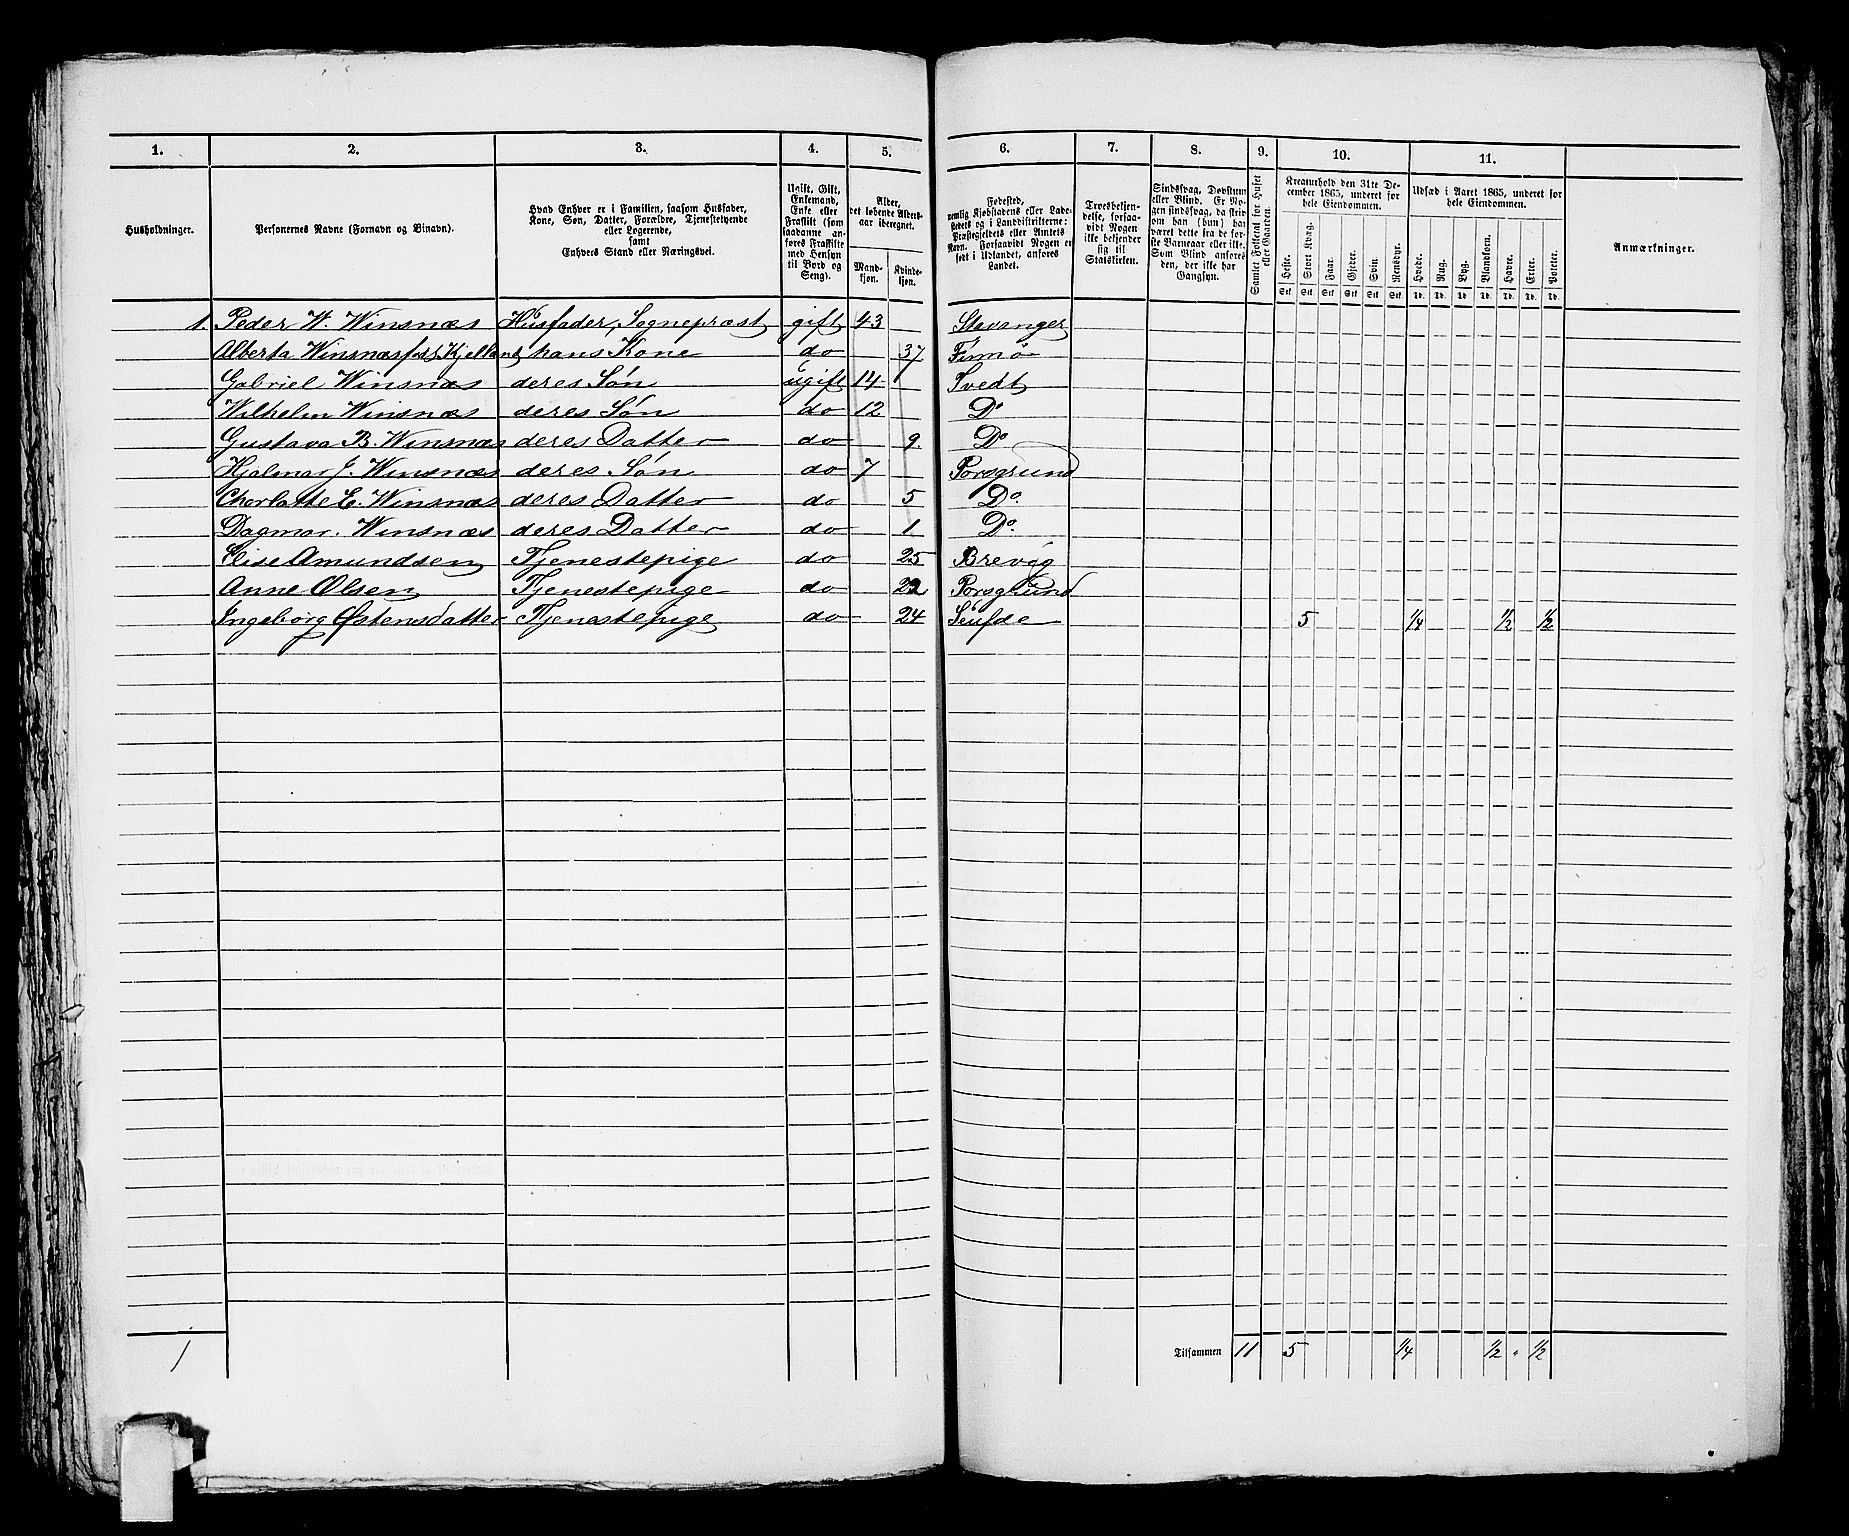 1. 2. 3. 4. 5. 6. 7. 8. 9. 10. 11.
Husholdninger.
Personernes Navne (Fornavn og Binavn).
Hvad Enhver er i Familien, saasom Husfader,
Kone, Søn, Datter, Forældre, Tjenestetyende
eller Logerende,
samt
Enhvers Stand eller Næringsvei.
Ugift, Gift,
Enkemand,
Enke eller
Fraskilt (som
saadanne an-
føres Fraskilte
med Hensyn
til Bord og
Seng).
Alder,
det løbende Alders-
aar iberegnet.
Mand-
kjøn.
Kvinde-
kjøn.
Fødested,
nemlig Kjøbstadens eller Lade-
stedets og i Landdistrikterne:
Præstegjeldets eller Amtets
Navn. Forsaavidt Nogen er
født i Udlandet, anføres
Landet.
Troesbekjen-
delse, forsaa-
vidt Nogen
ikke bekjender
sig til
Statskirken.
Sindssvag, Døvstum
eller Blind. Er No-
gen sindssvag, da skriv
om han (hun) har
været dette fra de før-
ste Barneaar eller ikke.
Som Blind anføres
den, der ikke har
Gangsyn.
Samlet Folketal for Huset
eller Gaarden.
Kreaturhold den 31te De-
cember 1865, underet for
hele Eiendommen.
Heste. Stort Kvæg. Faar. Gjeder. Svin. Rensdyr.
Stk. Stk. Stk. Stk. Stk. Stk.
Udsæd i Aaret 1865, underet for
hele Eiendommen.
Hvede. Rug. Byg. Blandkorn. Havre. Erter. Poteter.
Td. Td. Td. Td. Td. Td. Td.
Anmærkninger.
1. Peder W. Winsnæs Husfader, Sognepræst gift 43 Stavanger
Alberta Winsnæs født Kjelland hans Kone do 37 Finnø
Gabriel Winsnæs deres Søn ugift 14 Tvedt
Wilhelm Winsnæs deres Søn do 12 Do
Gustava B. Winsnæs deres Datter do 9. Do
Hjalmar J. Winsnæs deres Søn do 7 Porsgrund
Charlotte E. Winsnæs deres Datter do 5 Do.
Dagmar. Winsnæs deres Datter do 1. Do.
Elise Amundsen Tjenestepige do 25 Brevig
Anne Olsen Tjenestepige do 22 Porsgrund
Ingeborg Østensdatter Tjenestepige do 24 5 1/4 1/2 1/2
1 Tilsammen 11 5 1/4 1/2 " 1/2